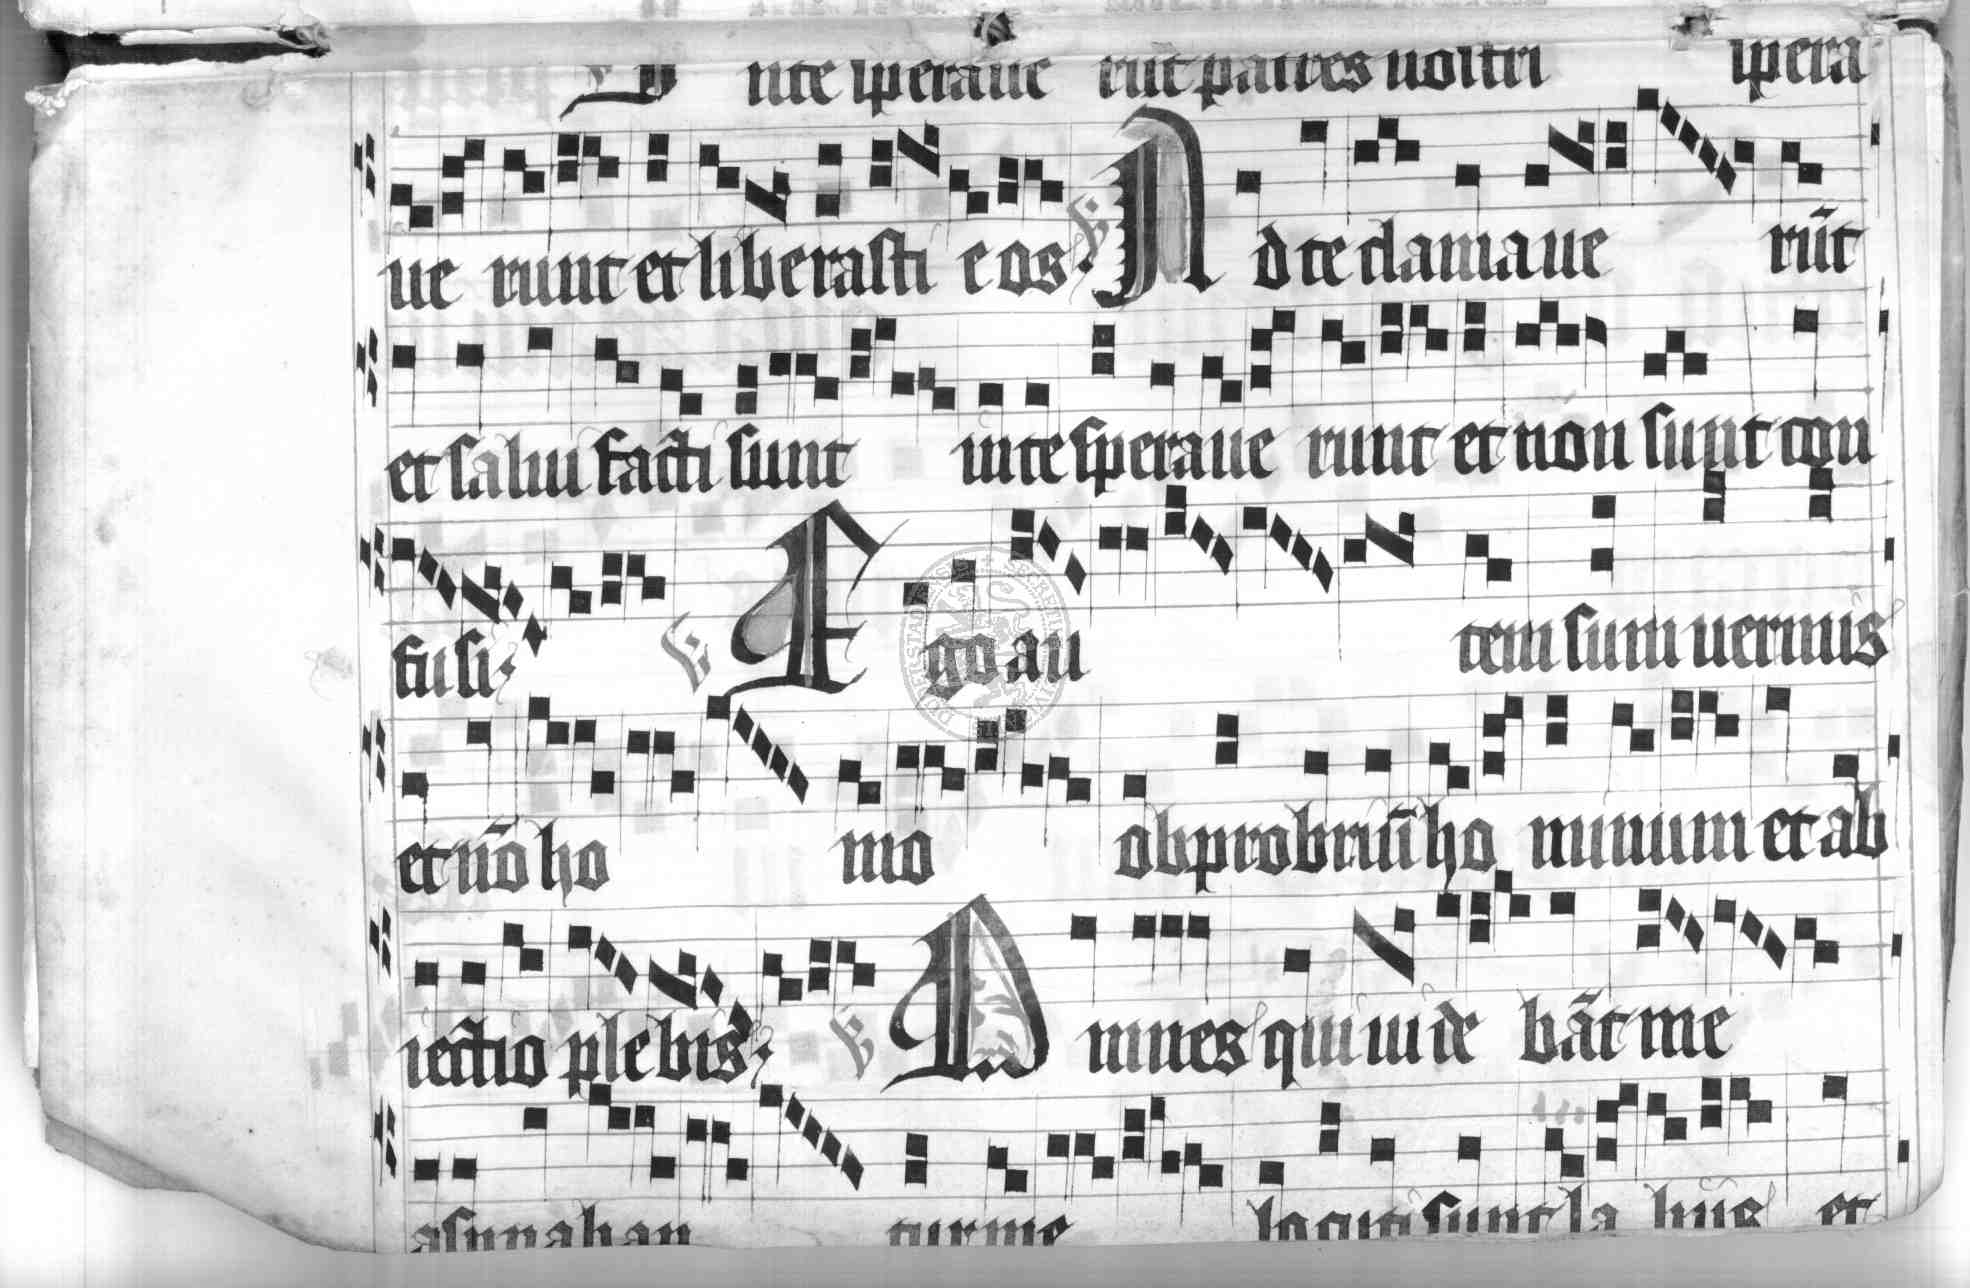 In te speraue rūt patres nostri spera
ue runt et liberasti eos. ℣ Ad te clamaue rūt
et salui facti sunt in te speraue runt et non sunt con
fusi. ℣ Ego au tem sum uermis
et nō ho mo obprobriū ho minum et ab
iectio plebis. ℣ Omnes qui uide bāt me
aspernaban tur me locuti sunt la biis et